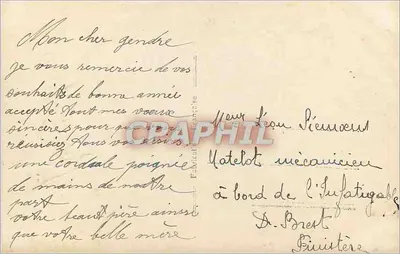 Mon cher gendre
je vous remercie de vos
souhaits de bonne année
accepté tout mes vœux
sincères pour
reusisez
une cordiale poignée
de mains de nautre
part
votre beaut père ainsi
que votre belle mère
CPAPHIL
Léon
Matelot mécanicien
à bord de l'Infatigable
Brest
Finistère